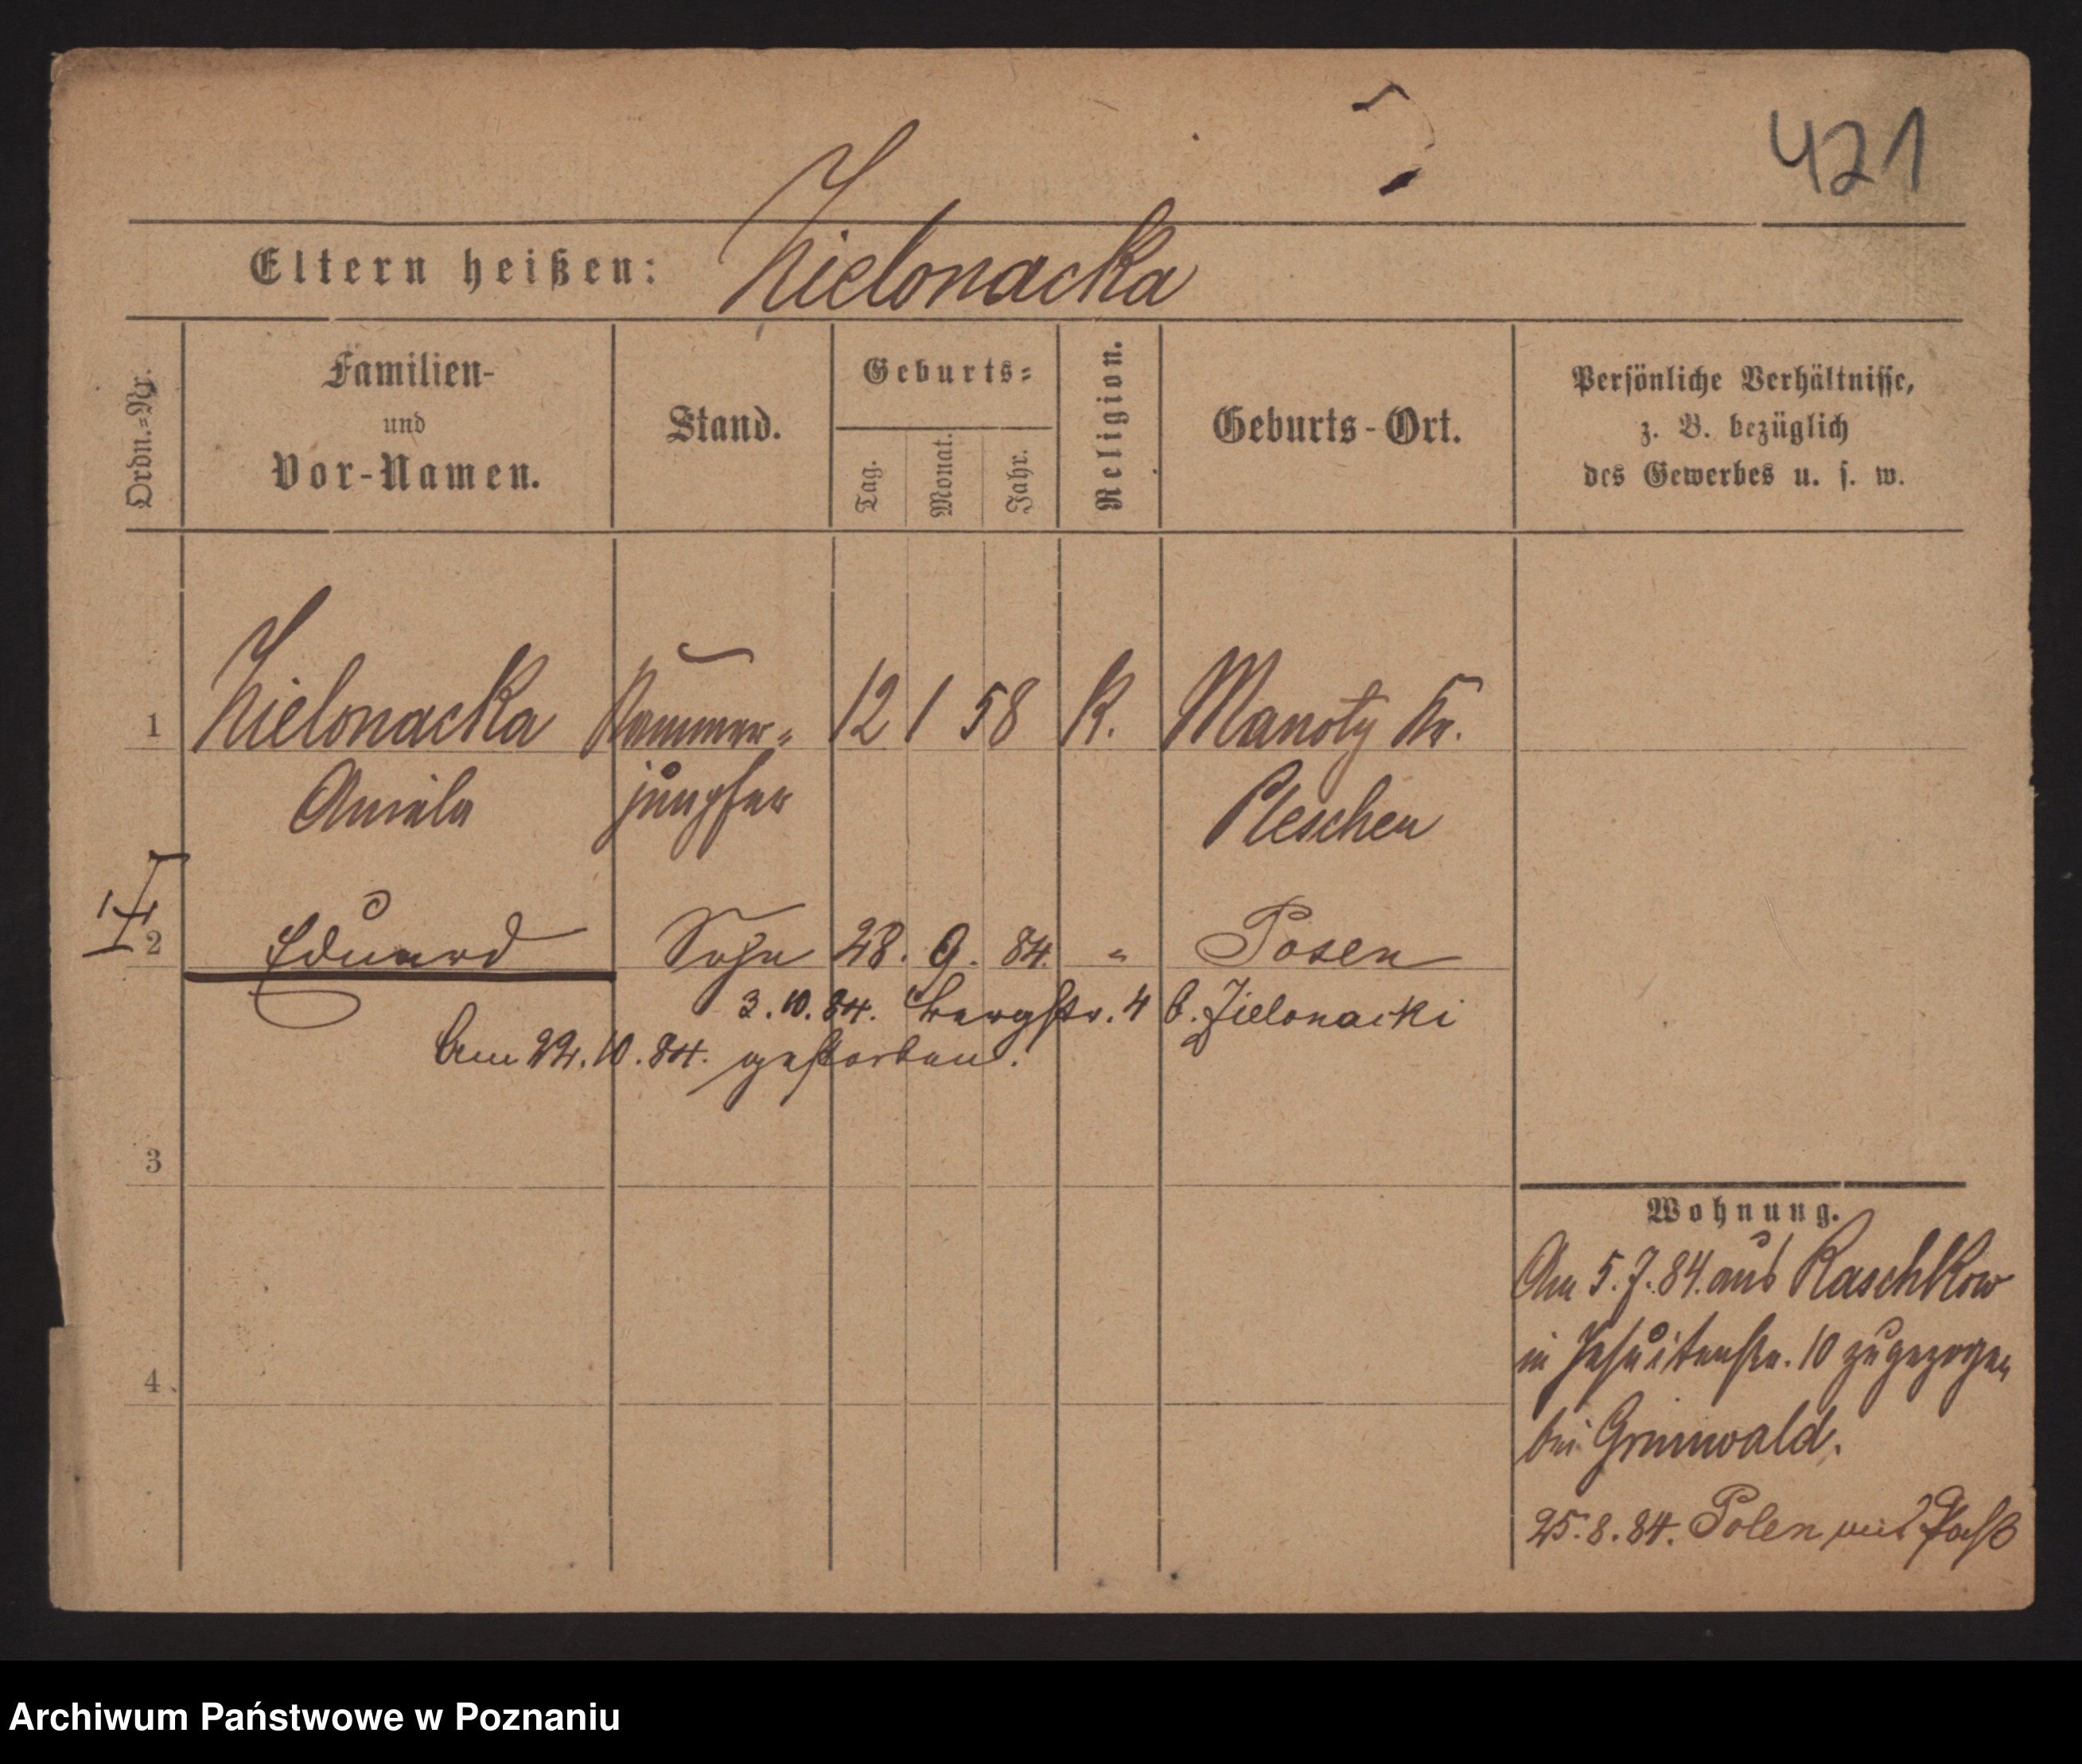 421
Eltern heißen: Zielonacka
Ordn.=Nr.
Familien-
und
Vor-Namen.
Stand.
Geburts=
Tag.
Monat.
Jahr.
Religion.
Geburts-Ort.
Persönliche Verhältnisse,
z. B. bezüglich
des Gewerbes u. s. w.
1 Zielonacka Kammer= 12 1 58 K. Manoty Kr.
Aniela jungfer Pleschen
2 Eduard Sohn 28. 9. 84. " Posen
3.10.84. Bergstr. 4 b. Zielonacki
Am 22.10.84. gestorben.
3
4
Wohnung.
Am 5.7.84. aus Raschkow
in Jesuitenstr. 10 zugezogen
bei Grunwald.
25.8.84. Polen mit Paß
Archiwum Państwowe w Poznaniu